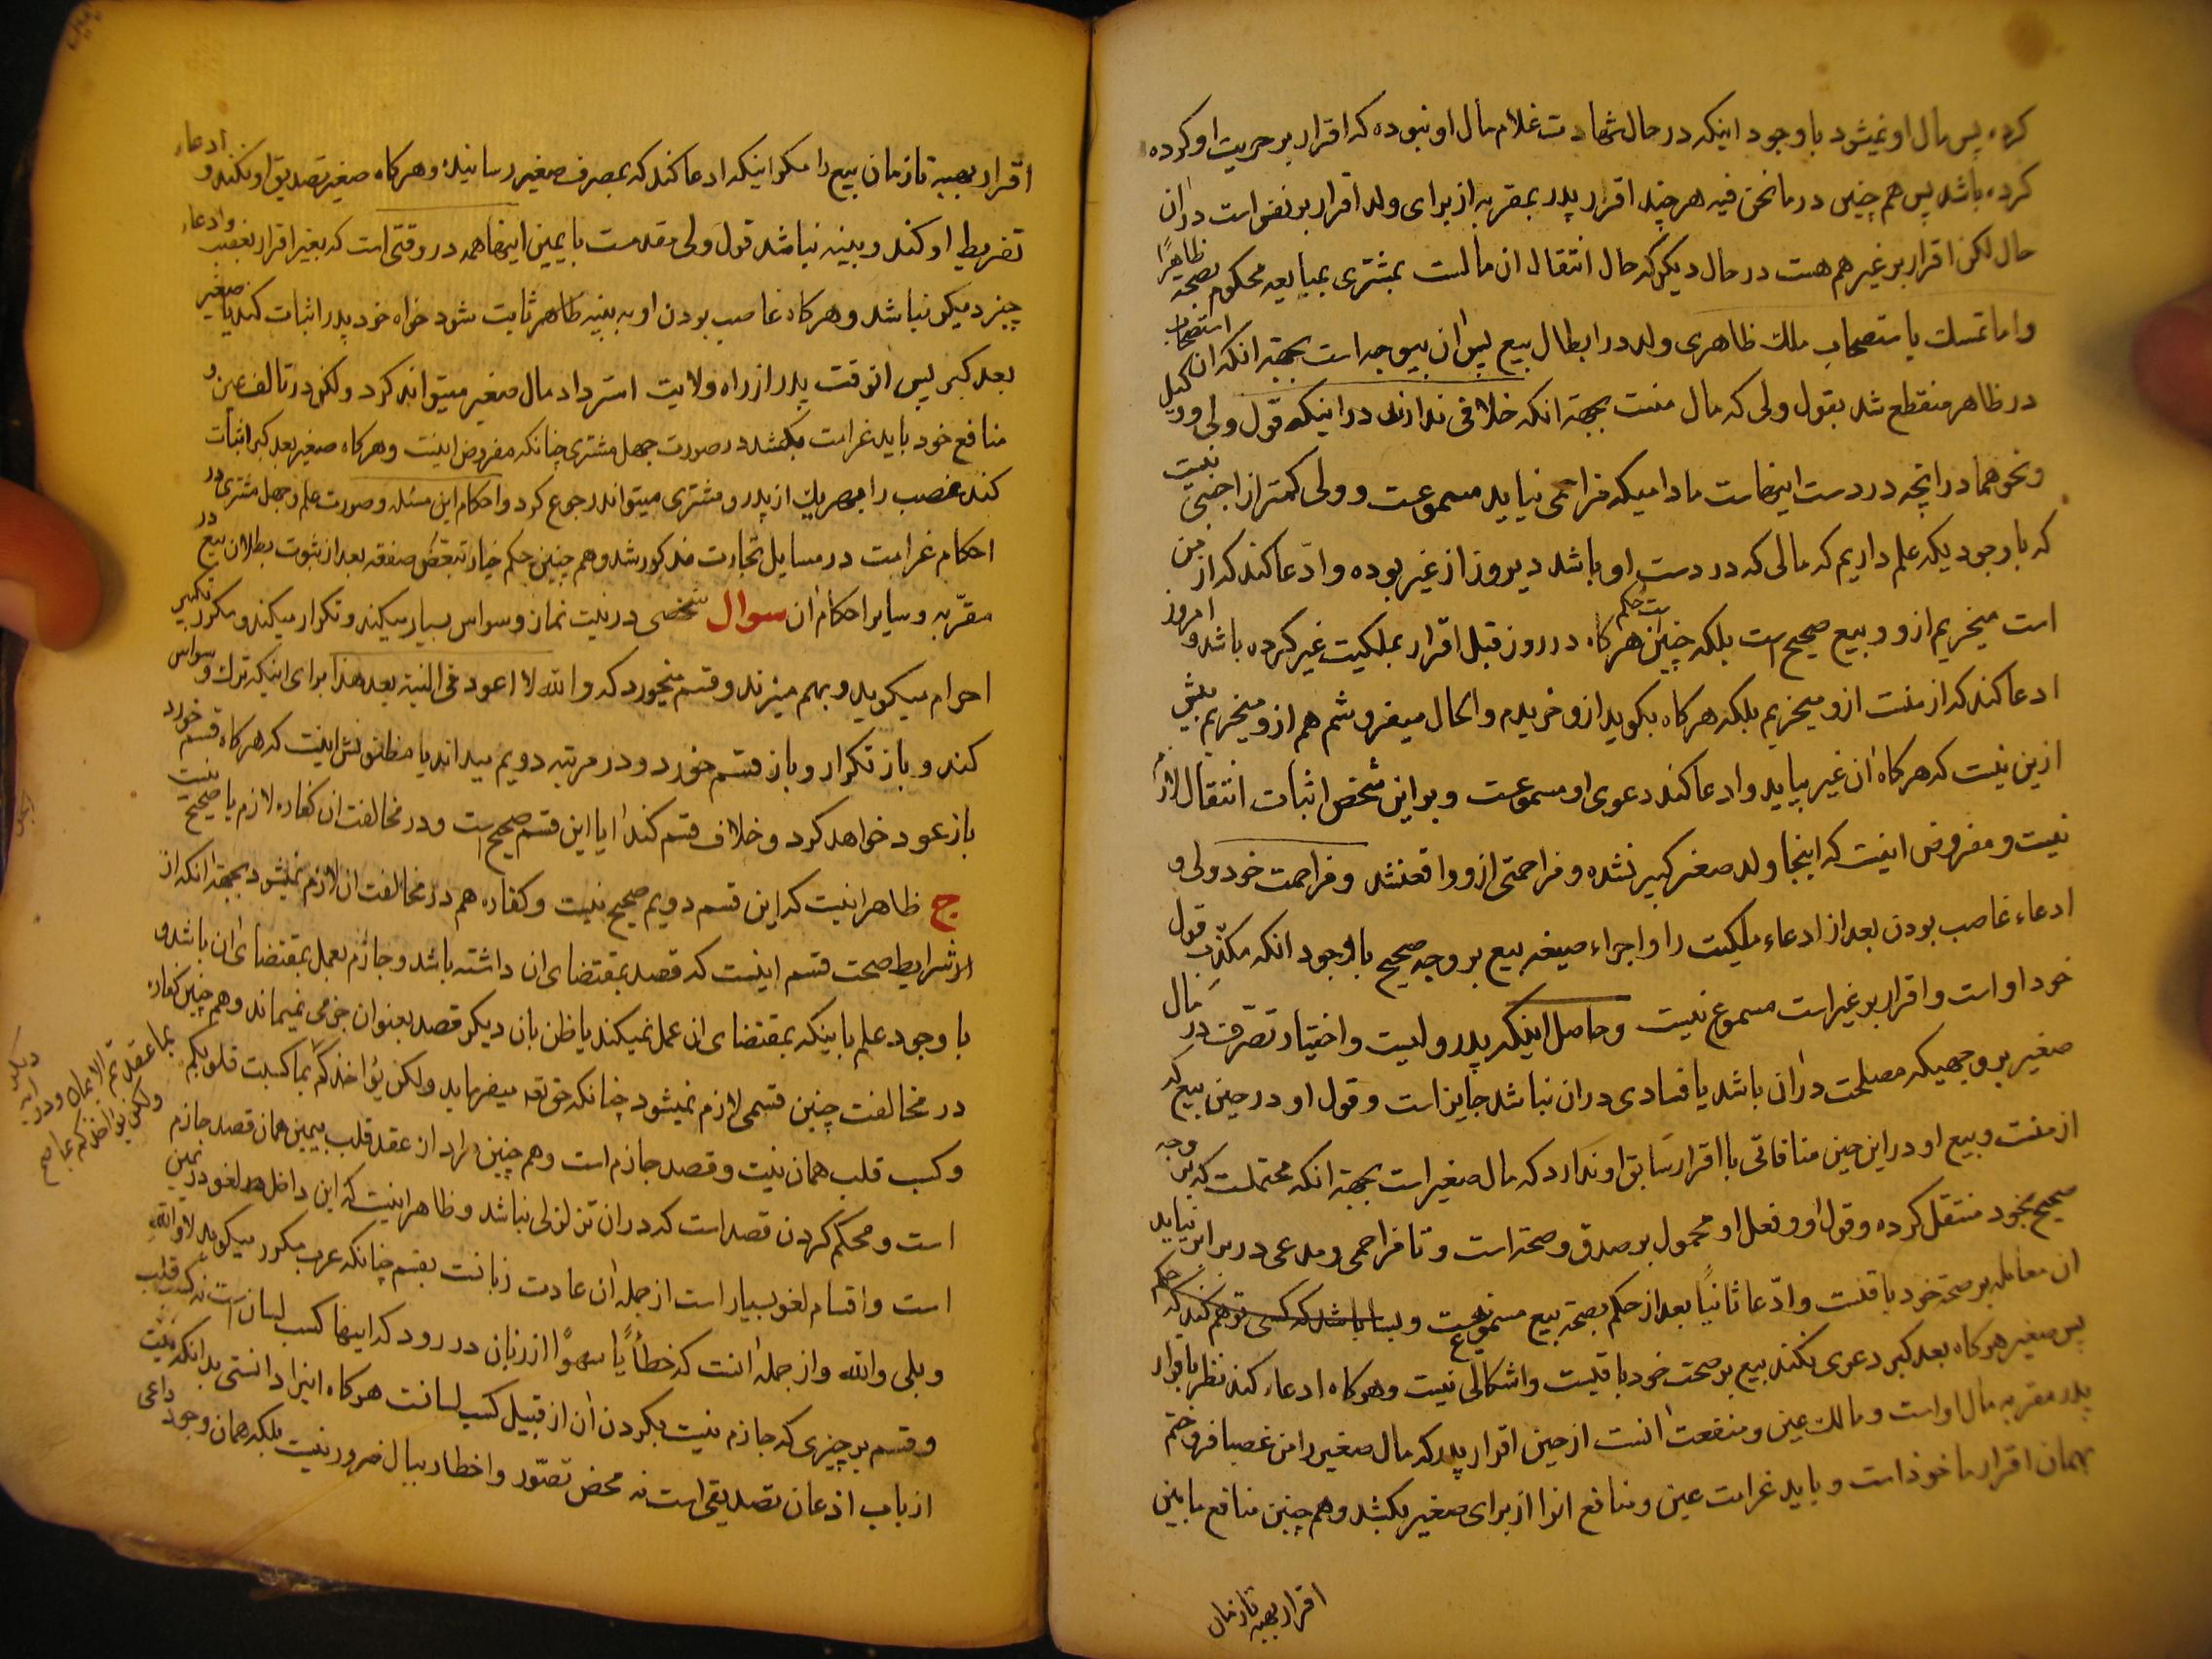 کرده پس مال او نمیشود با وجود اینکه در حال شهادت غلام مال او نبوده که اقرار بر حریت او کرده
کرده باشد پس هم چنین در ما نحن فیه هر چند اقرار پدر بمقر به از برای ولد اقرار بر نفس است در ان
حال لکن اقرار بر غیر هم هست در حال دیگر که حال انتقال ان مالست بمشتری بمبایعه محکوم بصحة ظاهرًا
و اما تمسک باستصحاب ملک ظاهری ولد در ابطال بیع پس ان بیوجه است بجهة انکه ان استصحاب
در ظاهر منقطع شد بقول ولی که مال منست بجهة انکه خلافی ندارند در اینکه قول ولی و وکیل
و نحو هما در انچه در دست ایشانست مادامیکه مزاحمی نیاید مسموعست و ولی کمتر از اجنبی نیست
که با وجود یکه علم داریم که مالی که در دست او باشد دیروز از غیر بوده و ادّعا کند که از من
است میخریم ازو و بیع صحیح است بلکه چنین است حکم هر کاه در روز قبل اقرار بملکیت غیر کرده باشد و امروز
ادعا کند که از منست ازو میخریم بلکه هر کاه بکوید ازو خریدم والحال میفروشم هم ازو میخریم بیش
ازین نیست که هر کاه ان غیر بیاید و ادعا کند دعوی او مسموعست و بر این شخص اثبات انتقال لازم
نیست و مفروض اینست که اینجا ولد صغیر کبیر نشده و مزاحمتی ازو واقعنشد و مزاحمت خود ولی و
ادعاء غاصب بودن بعد از ادعاء ملکیت را و اجراء صیغه بیع بر وجه صحیح با وجود انکه مکذّب قول
خود او است و اقرار بر غیر است مسموع نیست و حاصل اینکه پدر ولیست و اختیار تصرّف در مال
صغیر بر وجهیکه مصلحت در ان باشد یا فسادی در ان نباشد جایز است و قول او در حین بیع که
از منست و بیع او در این حین منافاتی با اقرار سابق او ندارد که مال صغیر است بجهة انکه محتملست که بر وجه
صحیح بخود منتقل کرده و قول او و فعل او محمول بر صدق و صحة است و تا مزاحمی و مدعی در برابر نیاید
ان معامله بر صحة خود باقیست و ادّعا ثانیاً بعد از حکم بصحة بیع مسموع نیست و بسا باشد که کسی توهم کند که حکم
پس صغیر هر کاه بعد کبر دعوی نکند بیع بر صحت خود باقیست و اشکالی نیست و هر کاه ادعاء کند نظر باقرار
پدر مقر به مال او است و مالک عین و منفعت انست از حین اقرار پدر که مال صغیر را من غصبا فروختم
بهمان اقرار ماخوذ است و باید غرامت عین و منافع انرا از برای صغیر بکشد و هم چنین منافع مابین
اقرار بهبه تا زمان
اقرار بهبه تا زمان بیع را مکر اینکه ادعا کند که بمصرف صغیر رسانیده و هر کاه صغیر تصدیق او نکند و ادعاء
تفریط او کند و بینه نباشد قول ولی مقدمست با یمین اینها همه در وقتی است که بغیر اقرار بغصب و ادعاء
چیز دیکر نباشد و هر کاه غاصب بودن او به بینه ظاهر ثابت شود خواه خود پدر اثبات کند یا صغیر
بعد کبر پس انوقت پدر از راه ولایت استرداد مال صغیر میتواند کرد و لکن در تالف عین و
منافع خود باید غرامت بکشد در صورت جهل مشتری چنانکه مفروض اینست و هر کاه صغیر بعد کبر اثبات
کند غصب را بهر یک از پدر و مشتری میتواند رجوع کرد و احکام این مسئله و صورت علم و جهل مشتری در
احکام غرامت در مسایل تجارت مذکور شد و هم چنین حکم خیار تبعّض صفقه بعد از ثبوت بطلان بیع در
مقرّ به و سایر احکام ان سوال شخصی در نیت نماز وسواس بسیار میکند و تکرار میکند و مکرر تکبیر
احرام میکوید و بهم میزند و قسم میخورد که والله لا اعود فی النیة بعد هذا برای اینکه ترک وسواس
کند و باز تکرار و باز قسم خورد و در مرتبه دویم میداند یا مظنونش اینست که هر کاه قسم خورد
باز عود خواهد کرد و خلاف قسم کند ایا این قسم صحیح است و در مخالفت ان کفاره لازم یا صحیح نیست
ج ظاهر اینست که این قسم دویم صحیح نیست و کفاره هم در مخالفت ان لازم نمیشود بجهة انکه از
شرایط صحت قسم اینست که قصد بمقتضای ان داشته باشد و جازم بعمل بمقتضای ان باشد و
با وجود علم باینکه بمقتضای ان عمل نمیکند یا ظن بان دیکر قصد بعنوان جزمی نمیماند و هم چنین کفاره
در مخالفت چنین قسمی لازم نمیشود چنانکه حق تعه میفرماید ولکن یؤاخذکم بما کسبت قلوبکم
و کسب قلب همان نیت و قصد جازم است و هم چنین مراد از عقد قلب بیمین همان قصد جازم
است و محکم کردن قصد است که در ان تزلزلی نباشد و ظاهر اینست که این داخل لغو در یمین
است و اقسام لغو بسیار است از جمله ان عادت زبانست بقسم چنانکه عرب مکرر میکوید لا والله
و بلی والله و از جمله انست که خطأً یا سهوًا از زبان در رود که اینها کسب لسان است نه کسب قلب
و قسم بر چیزی که جازم نیست بکردن ان از قبیل کسب لسانست هر کاه اینرا دانستی بدانکه نیت
از باب اذعان تصدیقی است نه محض تصوّر و اخطار ببال ضرور نیست بلکه همان وجود داعی